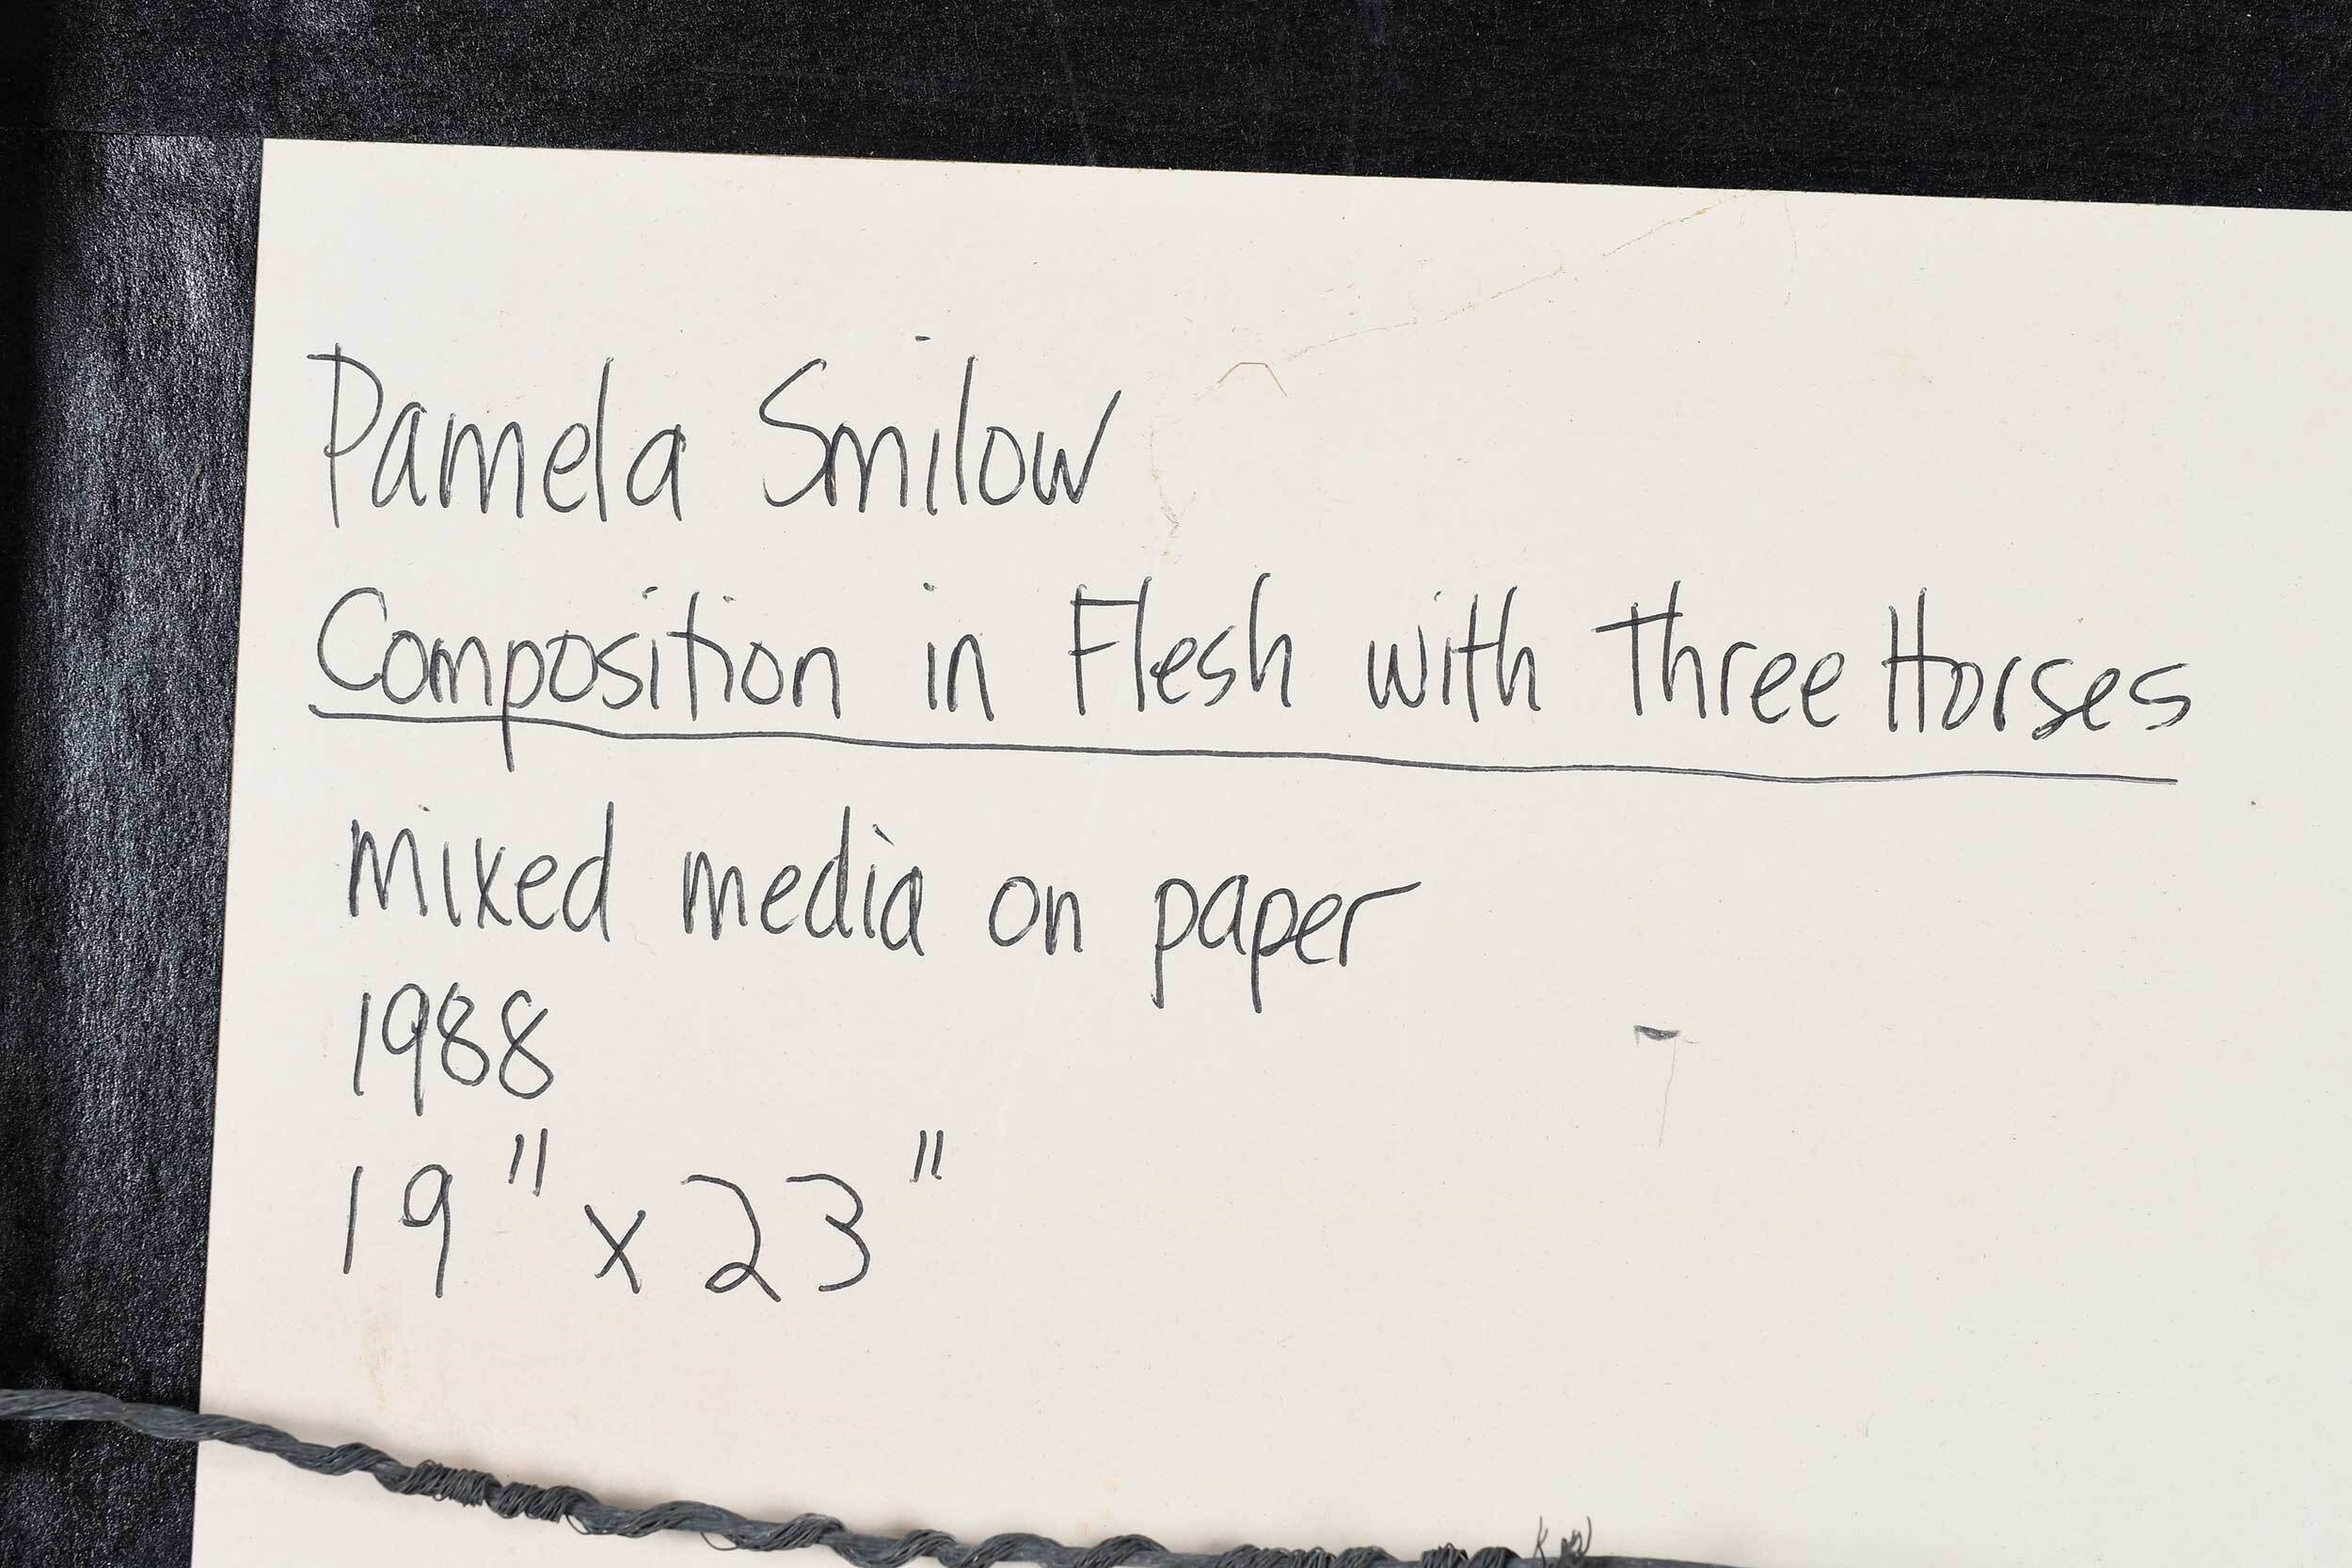 Pamela Smilow
Composition in Flesh with Three Horses
mixed media on paper
1988
19" x 23"